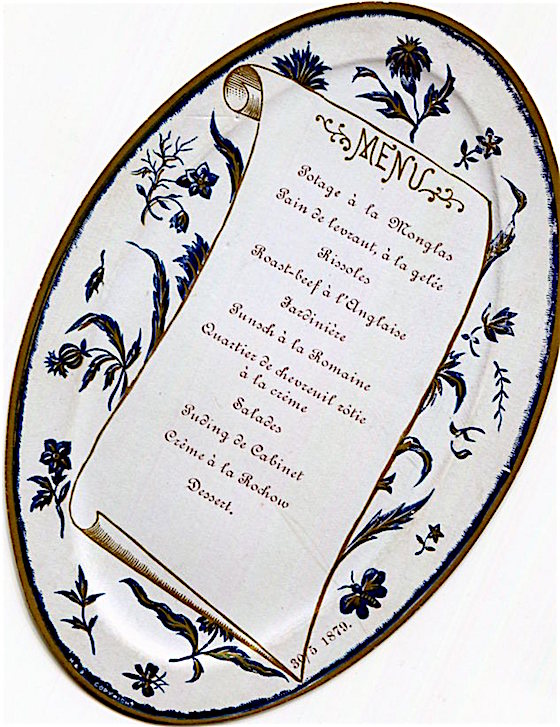 MENU
Potage à la Monglas
Pain de levraut, à la gelée
Rissoles
Roast-beef à l'Anglaise
Jardinière
Punsch à la Romaine
Quartier de chevreuil rôtie
à la crème
Salades
Puding de Cabinet
Crême à la Rochow
Dessert.
30/5 1879.
COPYRIGHT